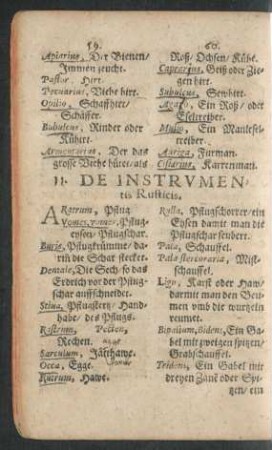 59.
Apiarius, Der Bienen/
Immen zeucht.
Pastor, Hirt.
Pecuarius, Viehe hirt.
Opilio, Schaffhirt/
Schäffer.
Bubulcus, Rinder oder
Kühirt.
Armentarius, Der das
grosse Viehe hütet/als
60.
Roß/ Ochsen/ Kühe.
Caprarius, Geiß oder Zie-
gen hirt.
Subulcus, Sewhirt.
Agaso, Ein Roß/ oder
Eseltreiber.
Mulio, Ein Mauleselt-
treiber.
Auriga, Furman.
Cisiarius, Karrenman.
11. DE INSTRVMEN-
tis Rusticis.
ARatrum, Pflug
Vomer, vomis, Pflug-
eysen/ Pflugschar.
Buris, Pflugkrümme/da-
rin die Schar stecket.
Dentale, Die Sech/so das
Erdrich vor der Pflug-
schar auffschneidet.
Stiua, Pflugstertz/ Hand-
habe/ des Pflugs.
Rastrum, Pecten,
Rechen.
Sarculum, Jäthawe.
Occa, Egge.
Rutrum, Hawe.
Rylla, Pflugschorrer/ein
Eysen damit man die
Pflugschar seubert.
Pala, Schauffel.
Pala stercoraria, Mist-
schauffel.
Ligo, Karst oder Haw/
darmit man den Beu-
men vmb die wurtzeln
reumet.
Bipalium, Bidens, Ein Ga-
bel mit zweigen spitzen/
Grabschauffel.
Tridens, Ein Gabel mit
dreyen Zanē oder Spi-
tzen/ ein